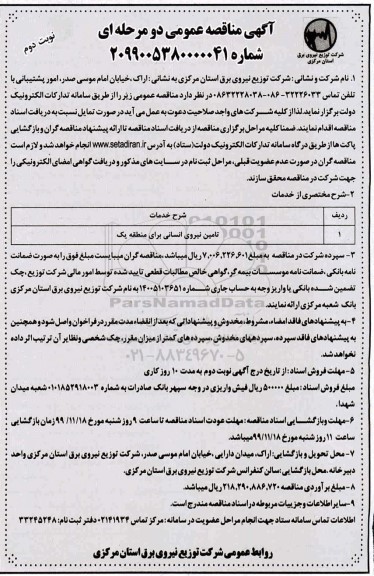 آگهی مناقصه عمومی دو مرحله ای
شماره ۲۰۹۹۰۰۵۳۸۰۰۰۰۰۴۱
نوبت دوم
شرکت توزیع نیروی برق
استان مرکزی
۱. نام شرکت و نشانی : شرکت توزیع نیروی برق استان مرکزی به نشانی : اراک ،خیابان امام موسی صدر، امور پشتیبانی با
تلفن تماس ۳۲۲۲۶۰۳۳-۰۸۶ - ۰۸۶۳۲۲۲۸۰۳۸ در نظر دارد مناقصه عمومی زیر را از طریق سامانه تدارکات الکترونیک
دولت برگزار نماید. لذا از کلیه شرکت های واجد صلاحیت دعوت به عمل می آید در صورت تمایل نسبت به دریافت اسناد
مناقصه اقدام نمایند. ضمنا کلیه مراحل برگزاری مناقصه از دریافت اسناد مناقصه تا ارائه پیشنهاد مناقصه گران و بازگشایی
پاکت ها از طریق درگاه سامانه تدارکات الکترونیک دولت (ستاد) به آدرس www.setadiran.ir انجام خواهد شد و لازم است
مناقصه گران در صورت عدم عضویت قبلی، مراحل ثبت نام در سایت های مذکور و دریافت گواهی امضای الکترونیکی را
جهت شرکت در مناقصه محقق سازند.
۲-شرح مختصری از خدمات
ردیف شرح خدمات
۱ تامین نیروی انسانی برای منطقه یک
۳- سپرده شرکت در مناقصه به مبلغ ۷,۰۰۶,۲۲۶,۶۰۱ ریال میباشد. مناقصه گران میبایست مبلغ فوق را به صورت ضمانت
نامه بانکی، ضمانت نامه موسسات بیمه گر، گواهی خالص مطالبات قطعی تایید شده توسط امور مالی شرکت توزیع ،چک
تضمین شده بانکی یا واریز وجه به حساب جاری شماره ۱۴۰۰۵۱۰۳۶۵۱ به نام شرکت توزیع نیروی برق استان مرکزی
بانک شعبه مرکزی ارائه نمایند.
۴- به پیشنهادهای فاقد امضاء، مشروط، مخدوش و پیشنهاداتی که بعد از انقضاء مدت مقرر در فراخوان واصل شود و همچنین
به پیشنهادهای فاقد سپرده، سپرده‌های مخدوش، سپرده های کمتر از میزان مقرر، چک شخصی و نظایر آن ترتیب اثر داده
نخواهد شد.
۵- مهلت فروش اسناد : از تاریخ درج آگهی نوبت دوم به مدت ۱۰ روز کاری
مبلغ فروش اسناد : مبلغ ۵۰۰۰۰۰ ریال فیش واریزی در وجه سپهر بانک صادرات به شماره ۰۱۰۱۸۵۲۹۱۸۰۰۳ شعبه میدان
شهدا.
۶-مهلت وبازگشایی اسناد مناقصه : مهلت عودت اسناد مناقصه تا ساعت ۹ روز شنبه مورخ ۹۹/۱۱/۱۸ زمان بازگشایی
ساعت ۱۱ روز شنبه مورخ ۹۹/۱۱/۱۸ میباشد.
۷- محل تحویل و بازگشایی : اراک، میدان دارایی ،خیابان امام موسی صدر، شرکت توزیع نیروی برق استان مرکزی واحد
دبیرخانه ،محل بازگشایی : سالن کنفرانس شرکت توزیع نیروی برق استان مرکزی.
۸- مبلغ برآوردی مناقصه ۲۱۸,۲۹۰,۸۸۶,۷۲۰ ریال میباشد.
۹-سایر اطلاعات و جزییات مربوطه در اسناد مناقصه مندرج است.
اطلاعات تماس سامانه ستاد جهت انجام مراحل عضویت در سامانه : مرکز تماس ۰۲۱۴۱۹۳۴ دفتر ثبت نام : ۳۳۲۴۵۲۴۸
روابط عمومی شرکت توزیع نیروی برق استان مرکزی
ParsNamadData
۰۲۱-۸۸۳۴۹۶۷۰-۵